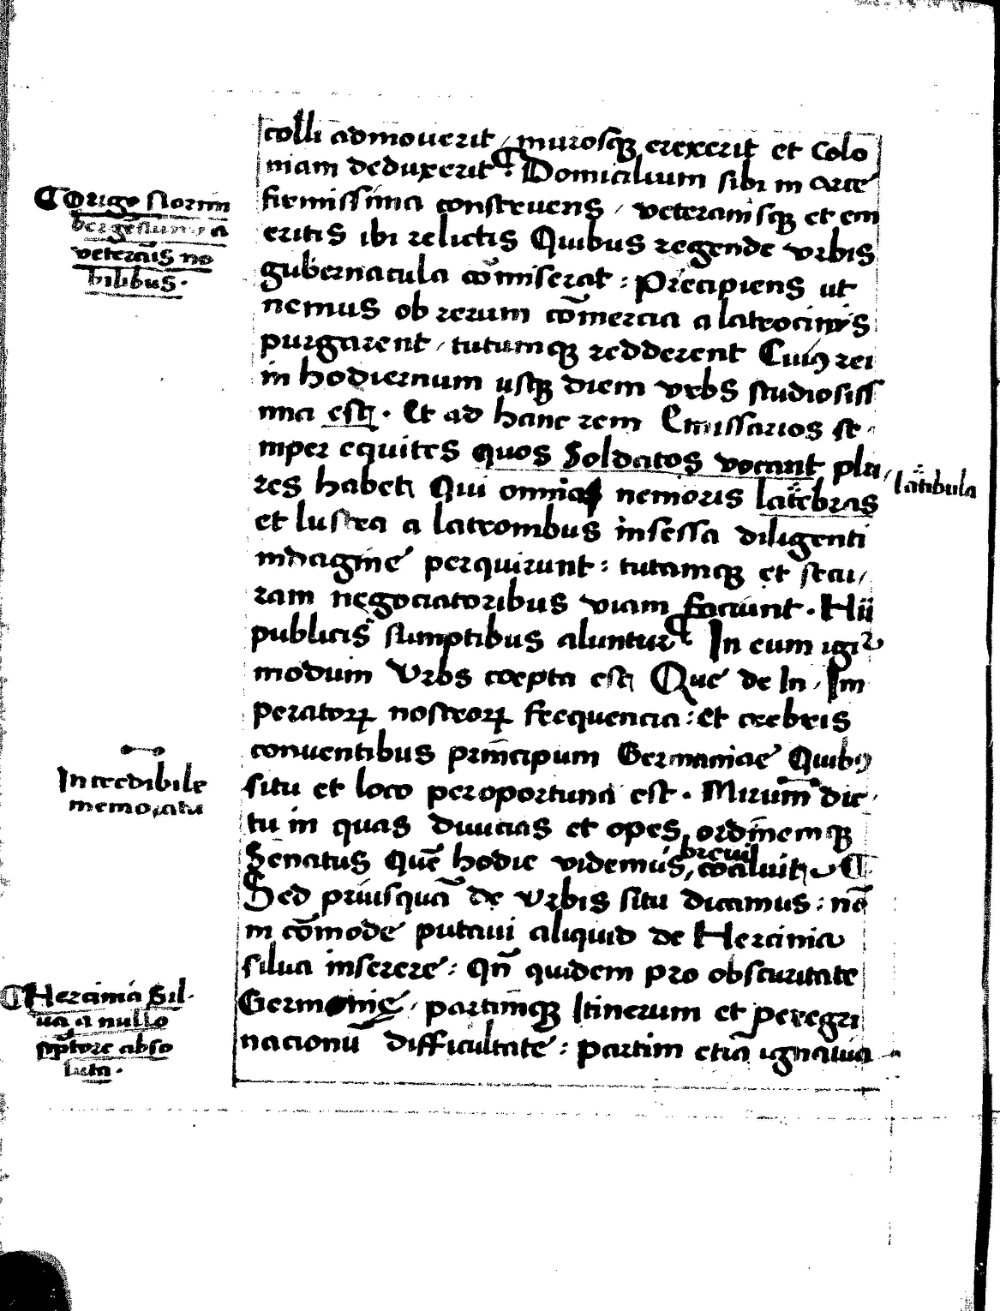 colli admouerit / murosqꝫ erexerit et Colo
niam deduxerit : ¶ Domicilium sibi in Arce
firmissima construens / veteranisqꝫ et em
eritis ibi relictis Quibus regende vrbis
gubernacula cōmiserat : Precipiens ut
nemus ob rerum cōmercia a latrocinijs
purgarent / tutumqꝫ redderent Cuiꝰ rei
in hodiernum usqꝫ diem vrbs studiosiss
ima est . Et ad hanc rem Emissarios se
mper equites quos Soldatos vocant plu
res habet Qui omnia nemoris latebras
et lustra a latronibus insessa diligenti
indagine perquirunt : tutamqꝫ et secu/
ram negociatoribus viam faciunt . Hij
publicis sumptibus aluntur ¶ In eum igiͬ
modum Vrbs coepta est Que de In / Im
peratorꝝ nostrorꝝ frequencia : et crebris
conuentibus principum Germaniae Quibꝰ
situ et loco peroportuna est . Mirum dic
tu in quas diuicias et opes, ordinemqꝫ
Senatus quē hodie videmus, breui coaluit ¶
Sed priusquā de vrbis situ dicamus : nō
in cōmode putaui aliquid de Hercinia
silua inserere : Qn̄ quidem pro obscuritate
Germanie / partimqꝫ Itinerum et peregri
nacionū difficultate : partim etiā ignauia
¶ Origo Norim
bergensium a
veteranis no
bilibus .
latibula
Incredibile
memoratu
¶ Hercinia Sil
ua a nullo
sc̄ptore abso
luta .